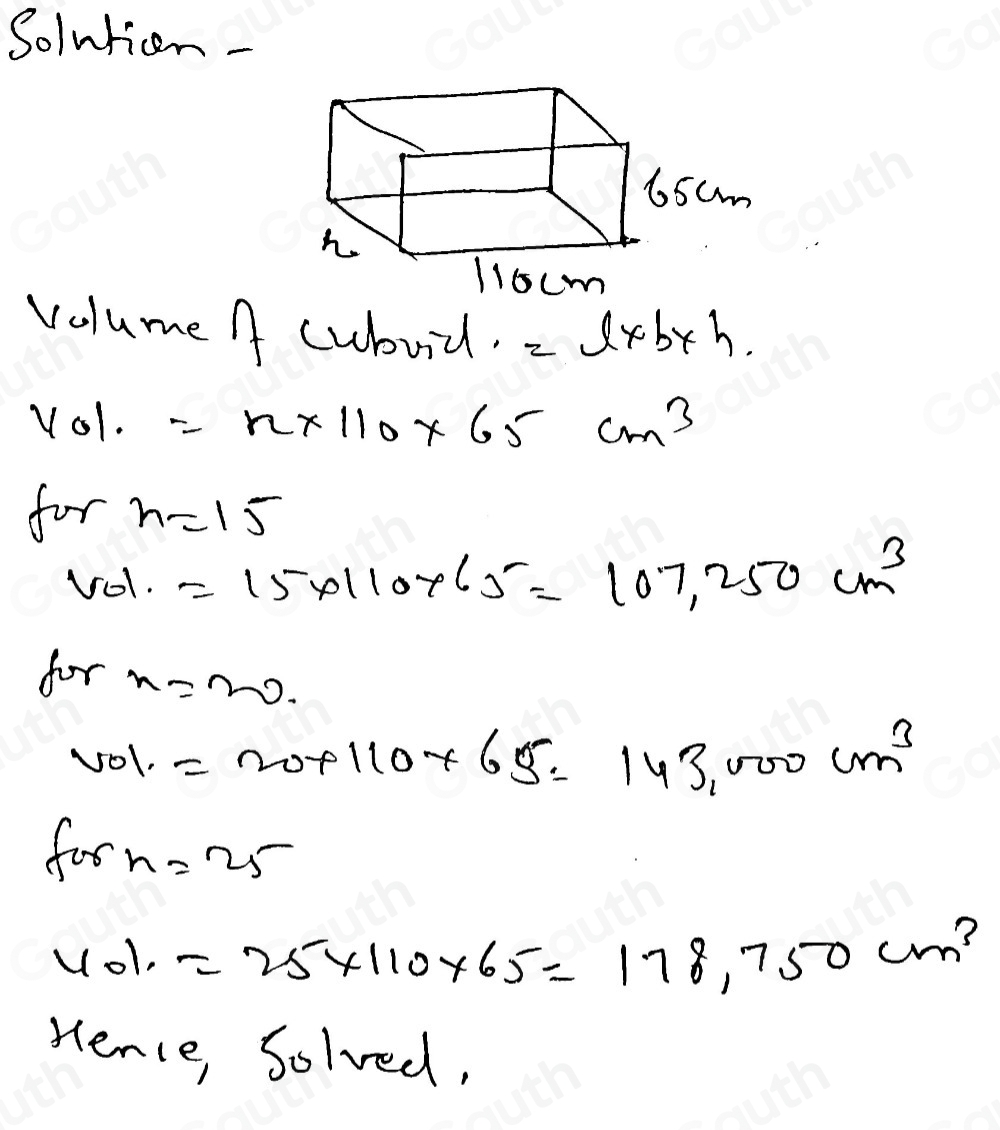 Solution -
65cm
n
110cm
Volume of cuboid. = l×b×h.
Vol. = n×110×65 cm³
for n=15
Vol. = 15×110×65= 107,250 cm³
for n=20.
Vol. = 20×110×65= 143,000 cm³
for n=25
Vol. = 25×110×65= 178,750 cm³
Hence, Solved.